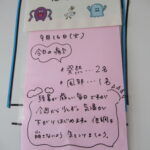 9月16日(火)
今日の欠席
・発熱…2名
・風邪…1名
残暑が厳しい毎日ですが
今週から少しずつ気温が
下がりはじめます。体調を
崩さないよう 気をつけましょう。